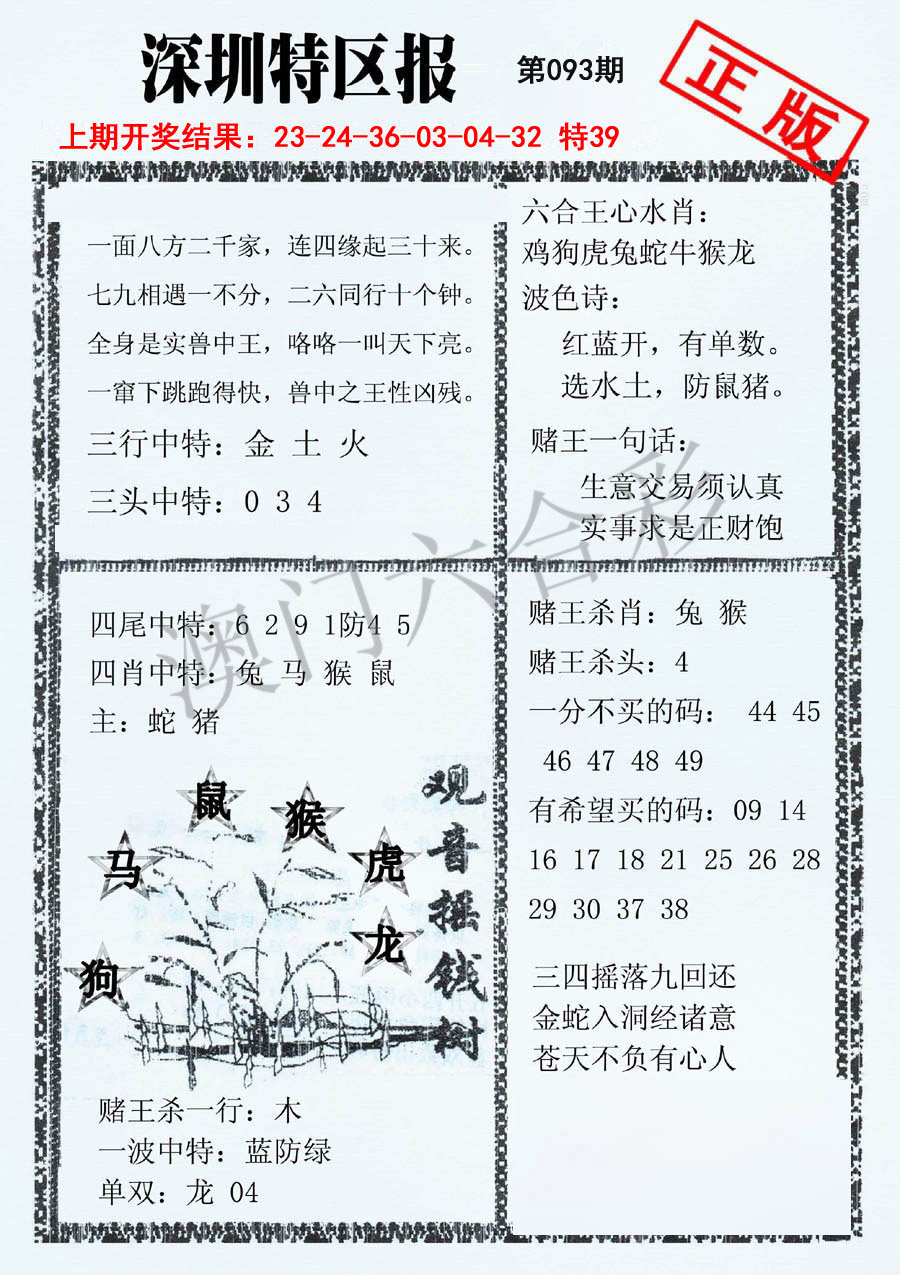 深圳特区报 第093期
正版
上期开奖结果：23-24-36-03-04-32 特39
一面八方二千家，连四缘起三十来。
七九相遇一不分，二六同行十个钟。
全身是实兽中王，咯咯一叫天下亮。
一窜下跳跑得快，兽中之王性凶残。
三行中特：金 土 火
三头中特：0 3 4
六合王心水肖：
鸡狗虎兔蛇牛猴龙
波色诗：
红蓝开，有单数。
选水土，防鼠猪。
赌王一句话：
生意交易须认真
实事求是正财饱
澳门六合彩
四尾中特：6 2 9 1防4 5
四肖中特：兔 马 猴 鼠
主：蛇 猪
鼠
猴
马
虎
龙
狗
观音摇钱树
赌王杀一行：木
一波中特：蓝防绿
单双：龙 04
赌王杀肖：兔 猴
赌王杀头：4
一分不买的码： 44 45
46 47 48 49
有希望买的码：09 14
16 17 18 21 25 26 28
29 30 37 38
三四摇落九回还
金蛇入洞经诸意
苍天不负有心人